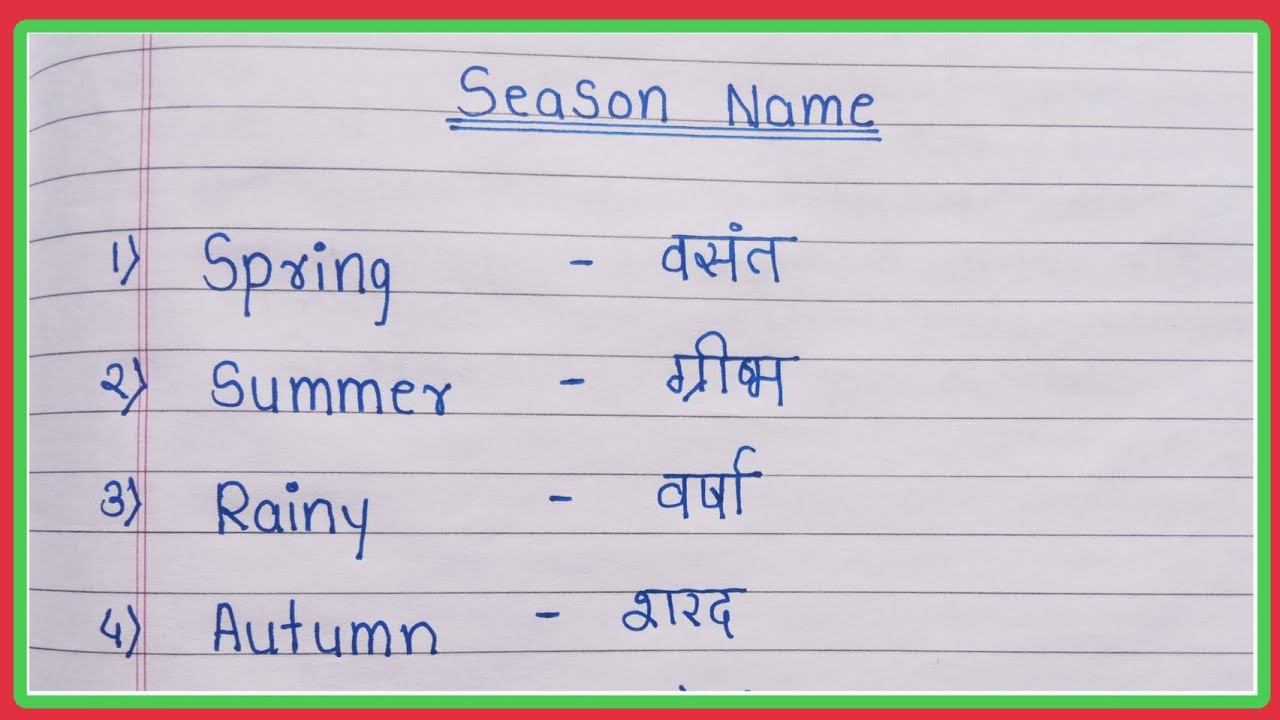 Season Name
1) Spring - वसंत
2) Summer - ग्रीष्म
3) Rainy - वर्षा
4) Autumn - शरद